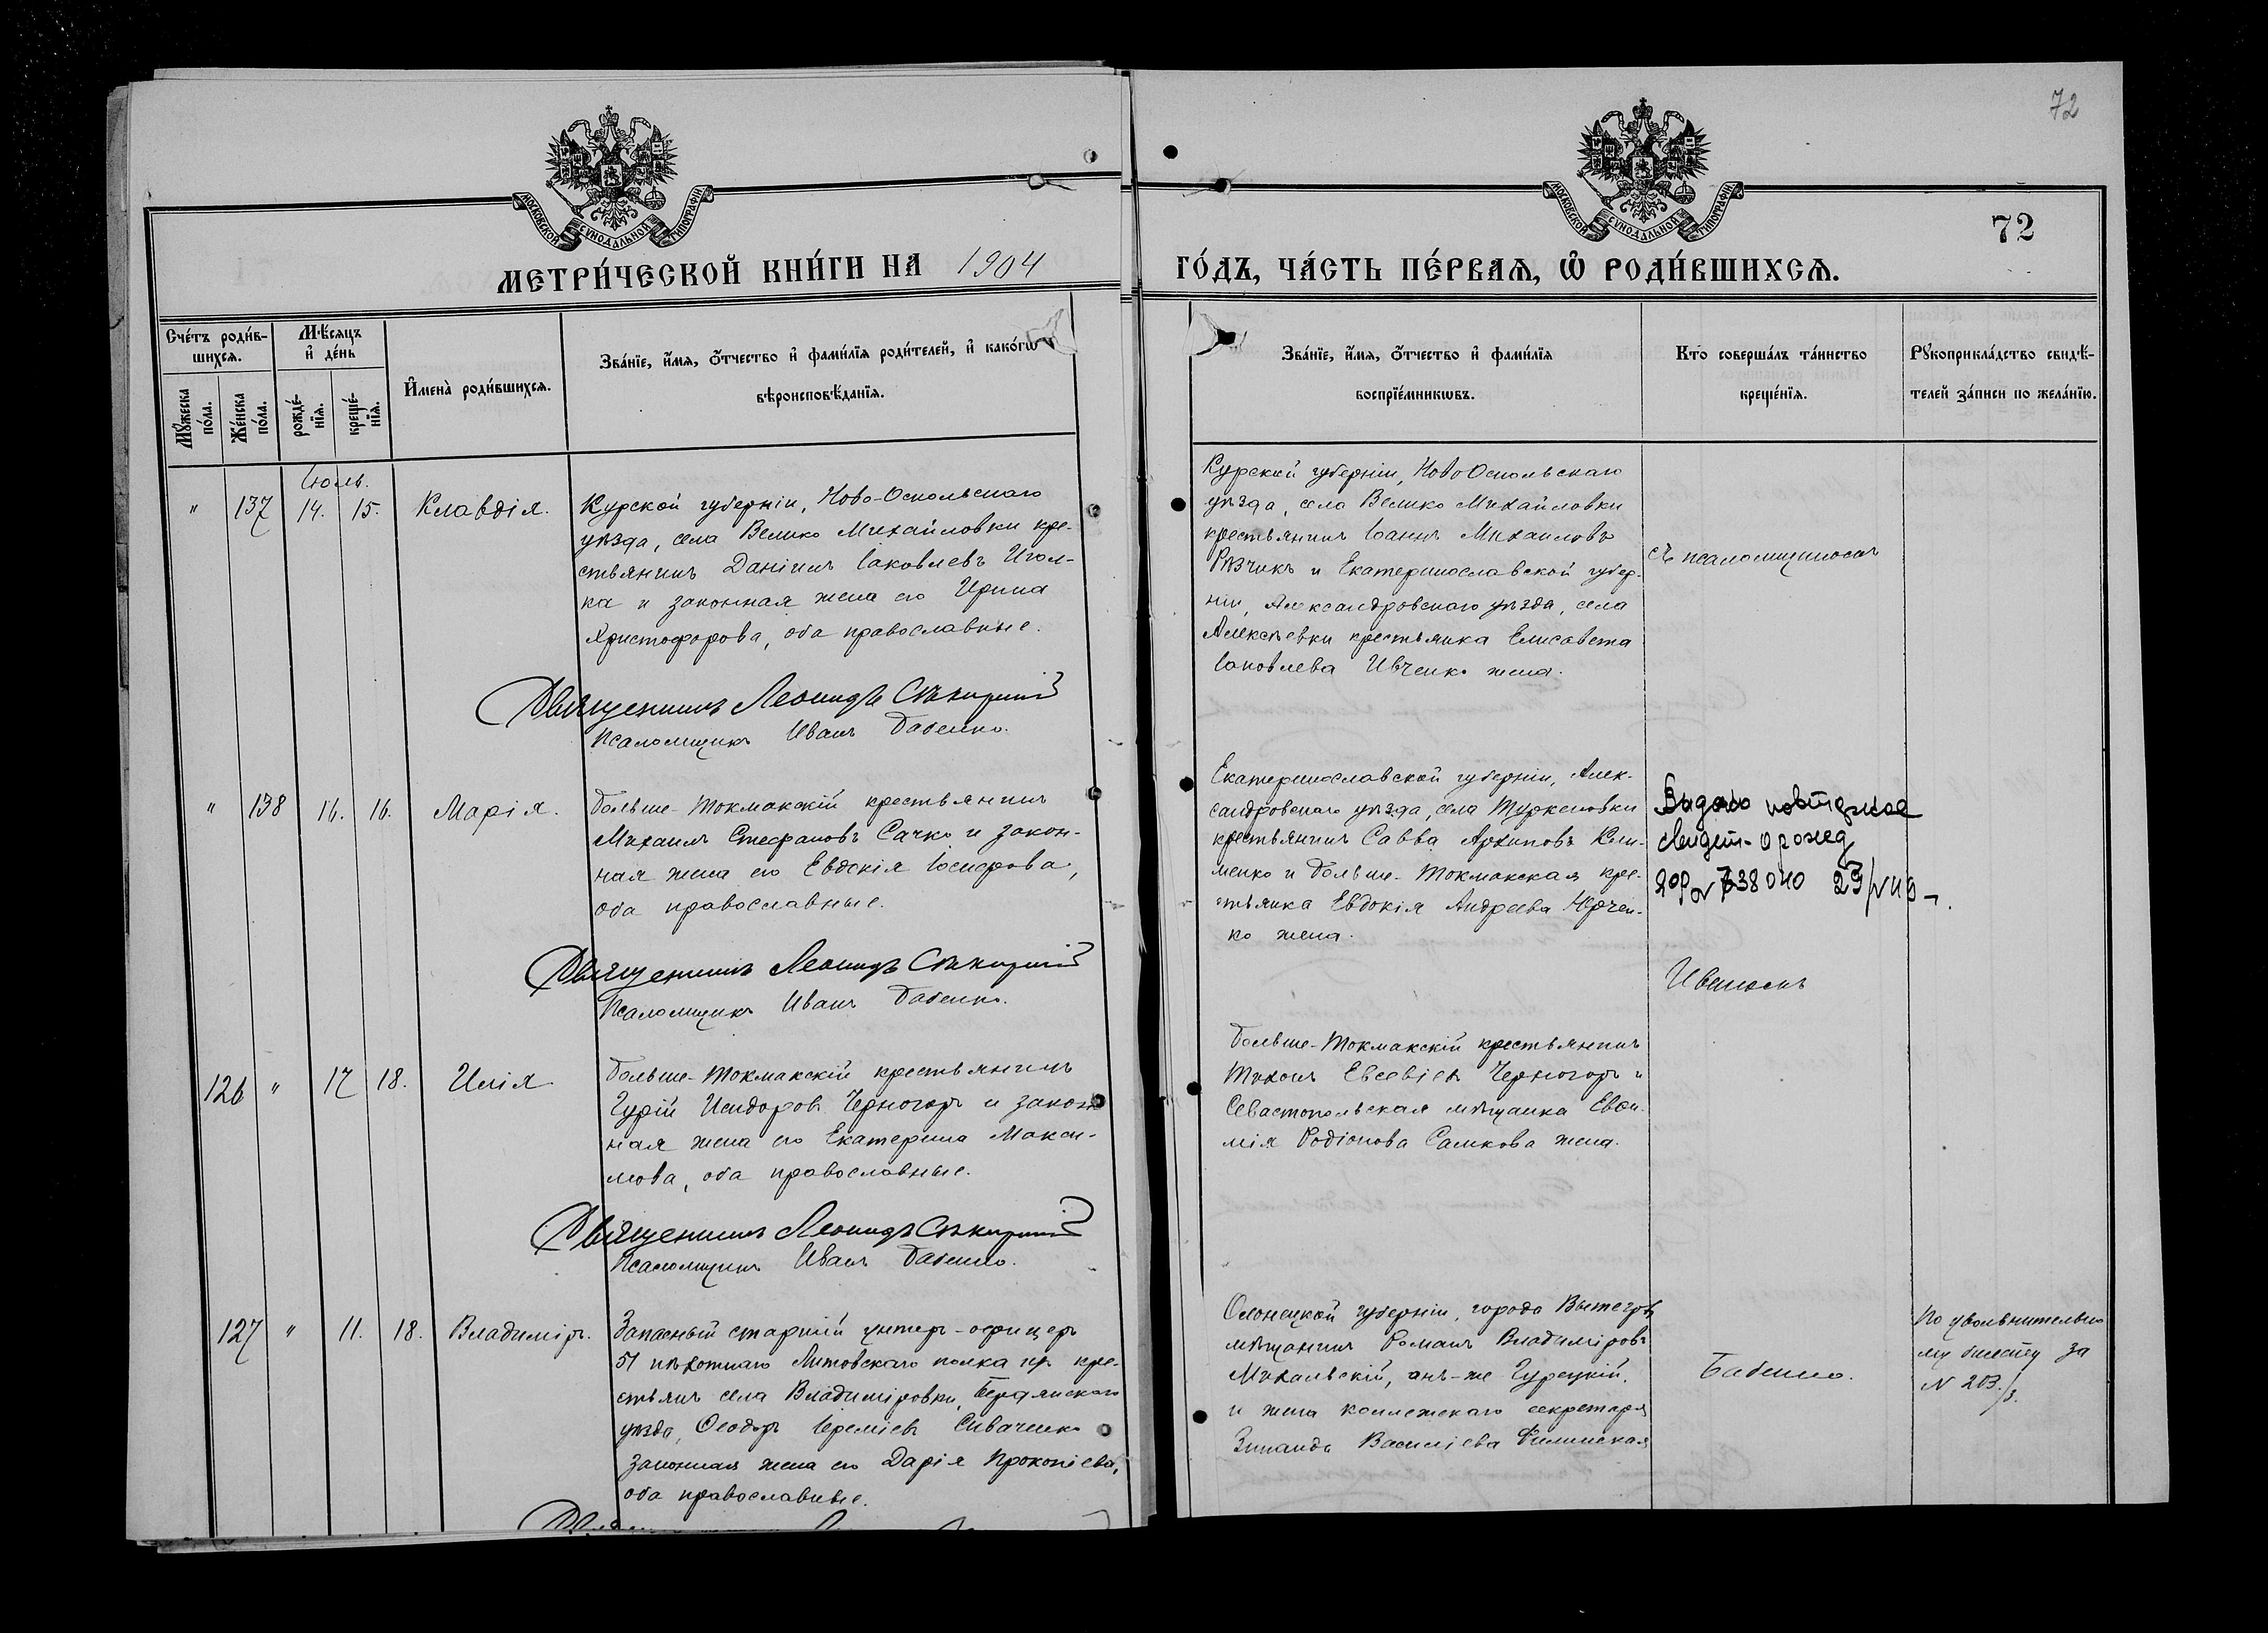 72
МОСКОВСКОЙ СѴНОДАЛЬНОЙ ТИПОГРАФІИ
МОСКОВСКОЙ СѴНОДАЛЬНОЙ ТИПОГРАФІИ
72
МЕТРИ́ЧЕСКОЙ КНИ́ГИ НА 1904
ГО́ДЪ, ЧА́СТЬ ПЕ́РВАЯ, Ѽ РОДИ́ВШИХСЯ.
Сче́тъ роди́в-
шихся.
Мѣ́сяцъ
и҆ де́нь
Мꙋ́жеска
по́ла.
Же́нска
по́ла.
рожде́-
нїя.
креще́-
нїя.
И҆мена̀ роди́вшихся.
Зва́нїе, и҆́мя, ѻ҆́тчество и҆ фами́лїя роди́телей, и҆ како́гѡ
вѣроисповѣ́данїя.
Зва́нїе, и҆́мя, ѻ҆́тчество и҆ фами́лїя
воспрїе́мникѡвъ.
Кто̀ соверша́лъ та́инство
креще́нїя.
Рꙋкоприкла́дство свидѣ́-
телей за́писи по жела́нїю.
Іюль.
" 137 14. 15. Клавдія.
Курской губерніи, Ново-Оскольскаго
уѣзда, села Велико Михайловки кре-
стьянинъ Даніилъ Іаковлевъ Игол-
ка и законная жена его Ирина
Христофорова, оба православные.
Священникъ Леонидъ Сѣкирскій
Псаломщикъ Иванъ Бабенко.
Курской губерніи, НовоОскольскаго
уѣзда, села Велико Михайловки
крестьянинъ Іоаннъ Михаиловъ
Рѣзчикъ и Екатеринославской губер-
ніи, Александровскаго уѣзда, села
Алексѣевки крестьянка Елисавета
Іаковлева Ивченко жена.
съ псаломщикомъ
" 138 16. 16. Марія.
Больше-Токмакскій крестьянинъ
Михаилъ Стефановъ Сачко и закон-
ная жена его Евдокія Іосифова,
оба православные.
Священникъ Леонидъ Сѣкирскій
Псаломщикъ Иванъ Бабенко.
Екатеринославской губерніи, Алек-
сандровскаго уѣзда, села Туркеновки
крестьянинъ Савва Архиповъ Кли-
менко и Больше-Токмакская кре-
стьянка Евдокія Андреева Юрчен-
ко жена.
Выдано повторное
свидет. о рожд
Иваномъ
126 " 17 18. Илія
Больше-Токмакскій крестьянинъ
Гурій Исидоровъ Черногоръ и закон
ная жена его Екатерина Макси-
мова, оба православные.
Священникъ Леонидъ Сѣкирскій
Псаломщикъ Иванъ Бабенко.
Больше-Токмакскій крестьянинъ
Тихонъ Евсевіевъ Черногоръ и
Севастопольская мѣщанка Евфи-
мія Родіонова Самкова жена.
127 " 11. 18. Владиміръ.
Запасный старшій унтеръ-офицеръ
51 пѣхотнаго Литовскаго полка кре-
стьянъ села Владиміровки, Бердянскаго
уѣзда, Ѳеодоръ Іереміевъ Сиваченко
законная жена его Дарія Прокопіева,
оба православные.
Олонецкой губерніи, города Вытегры
мѣщанинъ Романъ Владиміровъ
Михальскій, онъ-же Гурецкій,
и жена коллежскаго секретаря
Зинаида Василіева
Бабенко.
По увольнительно
му билету за
N 203/3.